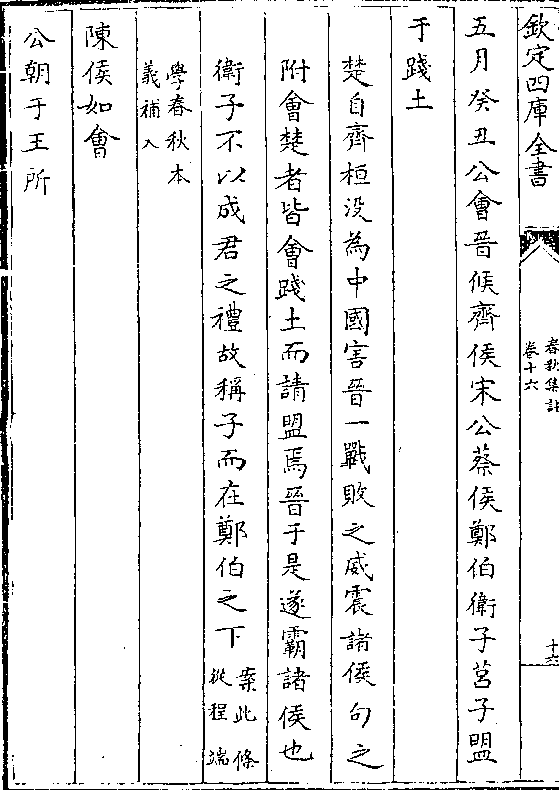 欽定四庫全書
春秋集註
卷十六
十六
五月癸丑公會晉候齊侯宋公蔡侯鄭伯衛子莒子盟
于踐土
楚自齊桓没為中國害晉一戰敗之威震諸侯向之
附會楚者皆會踐土而請盟焉晉于是遂霸諸侯也
衛子不以成君之禮故稱子而在鄭伯之下案此條
從程端
學春秋本
義補入
陳侯如會
公朝于王所